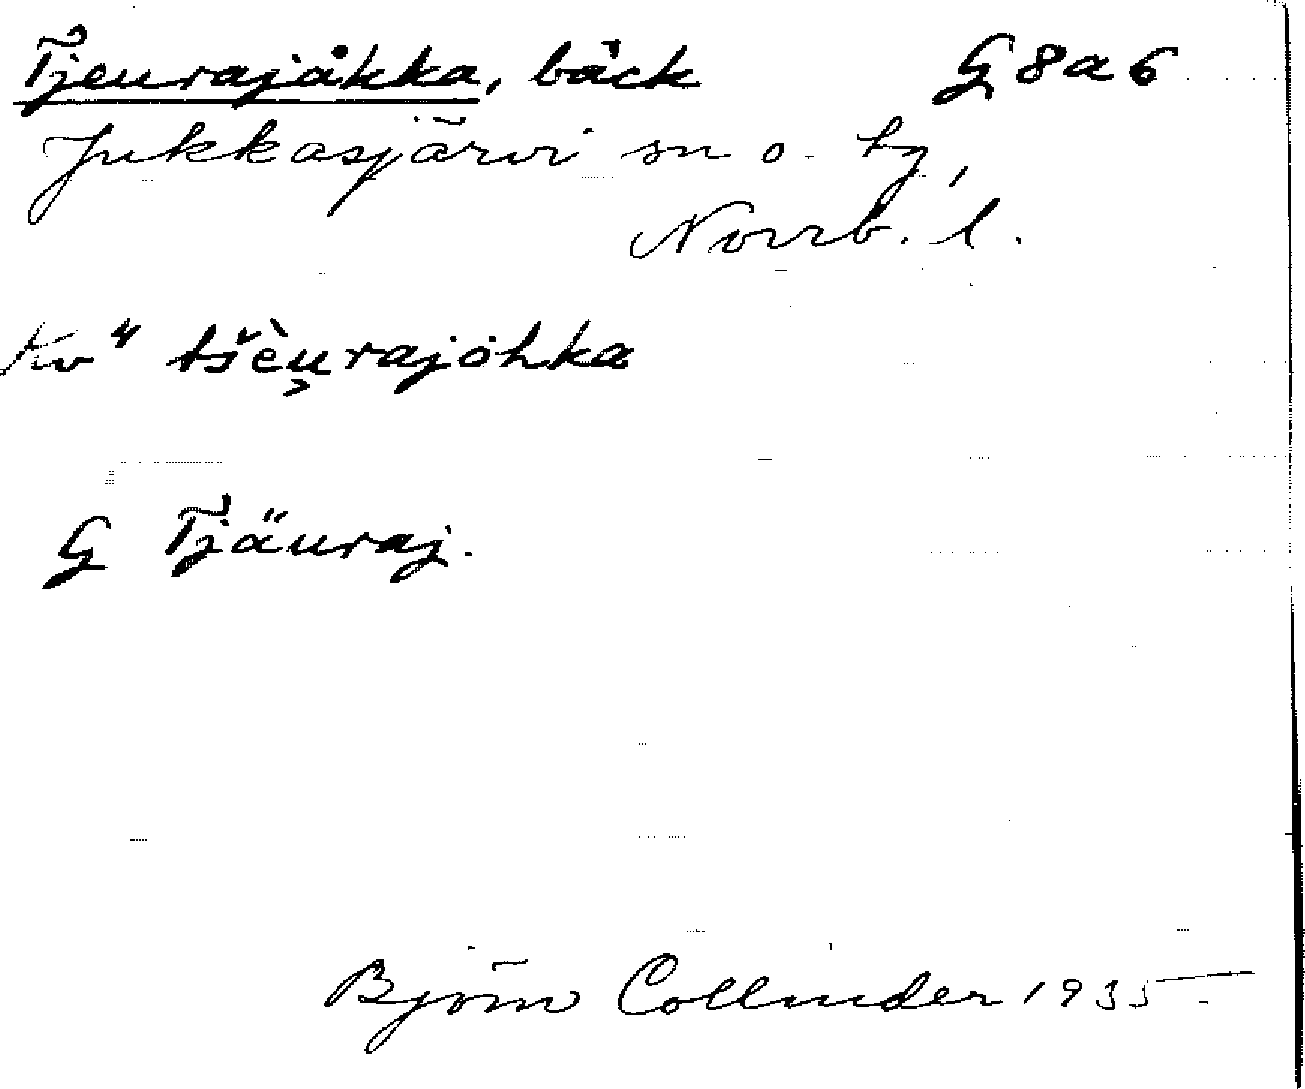 Tjeurajåkka, bäck G 8 a 6
Jukkasjärvi sn o. tg,
Norrb. l.
Kv " tšèu̯rajohka
G Tjäuraj.
Björn Collinder 1935